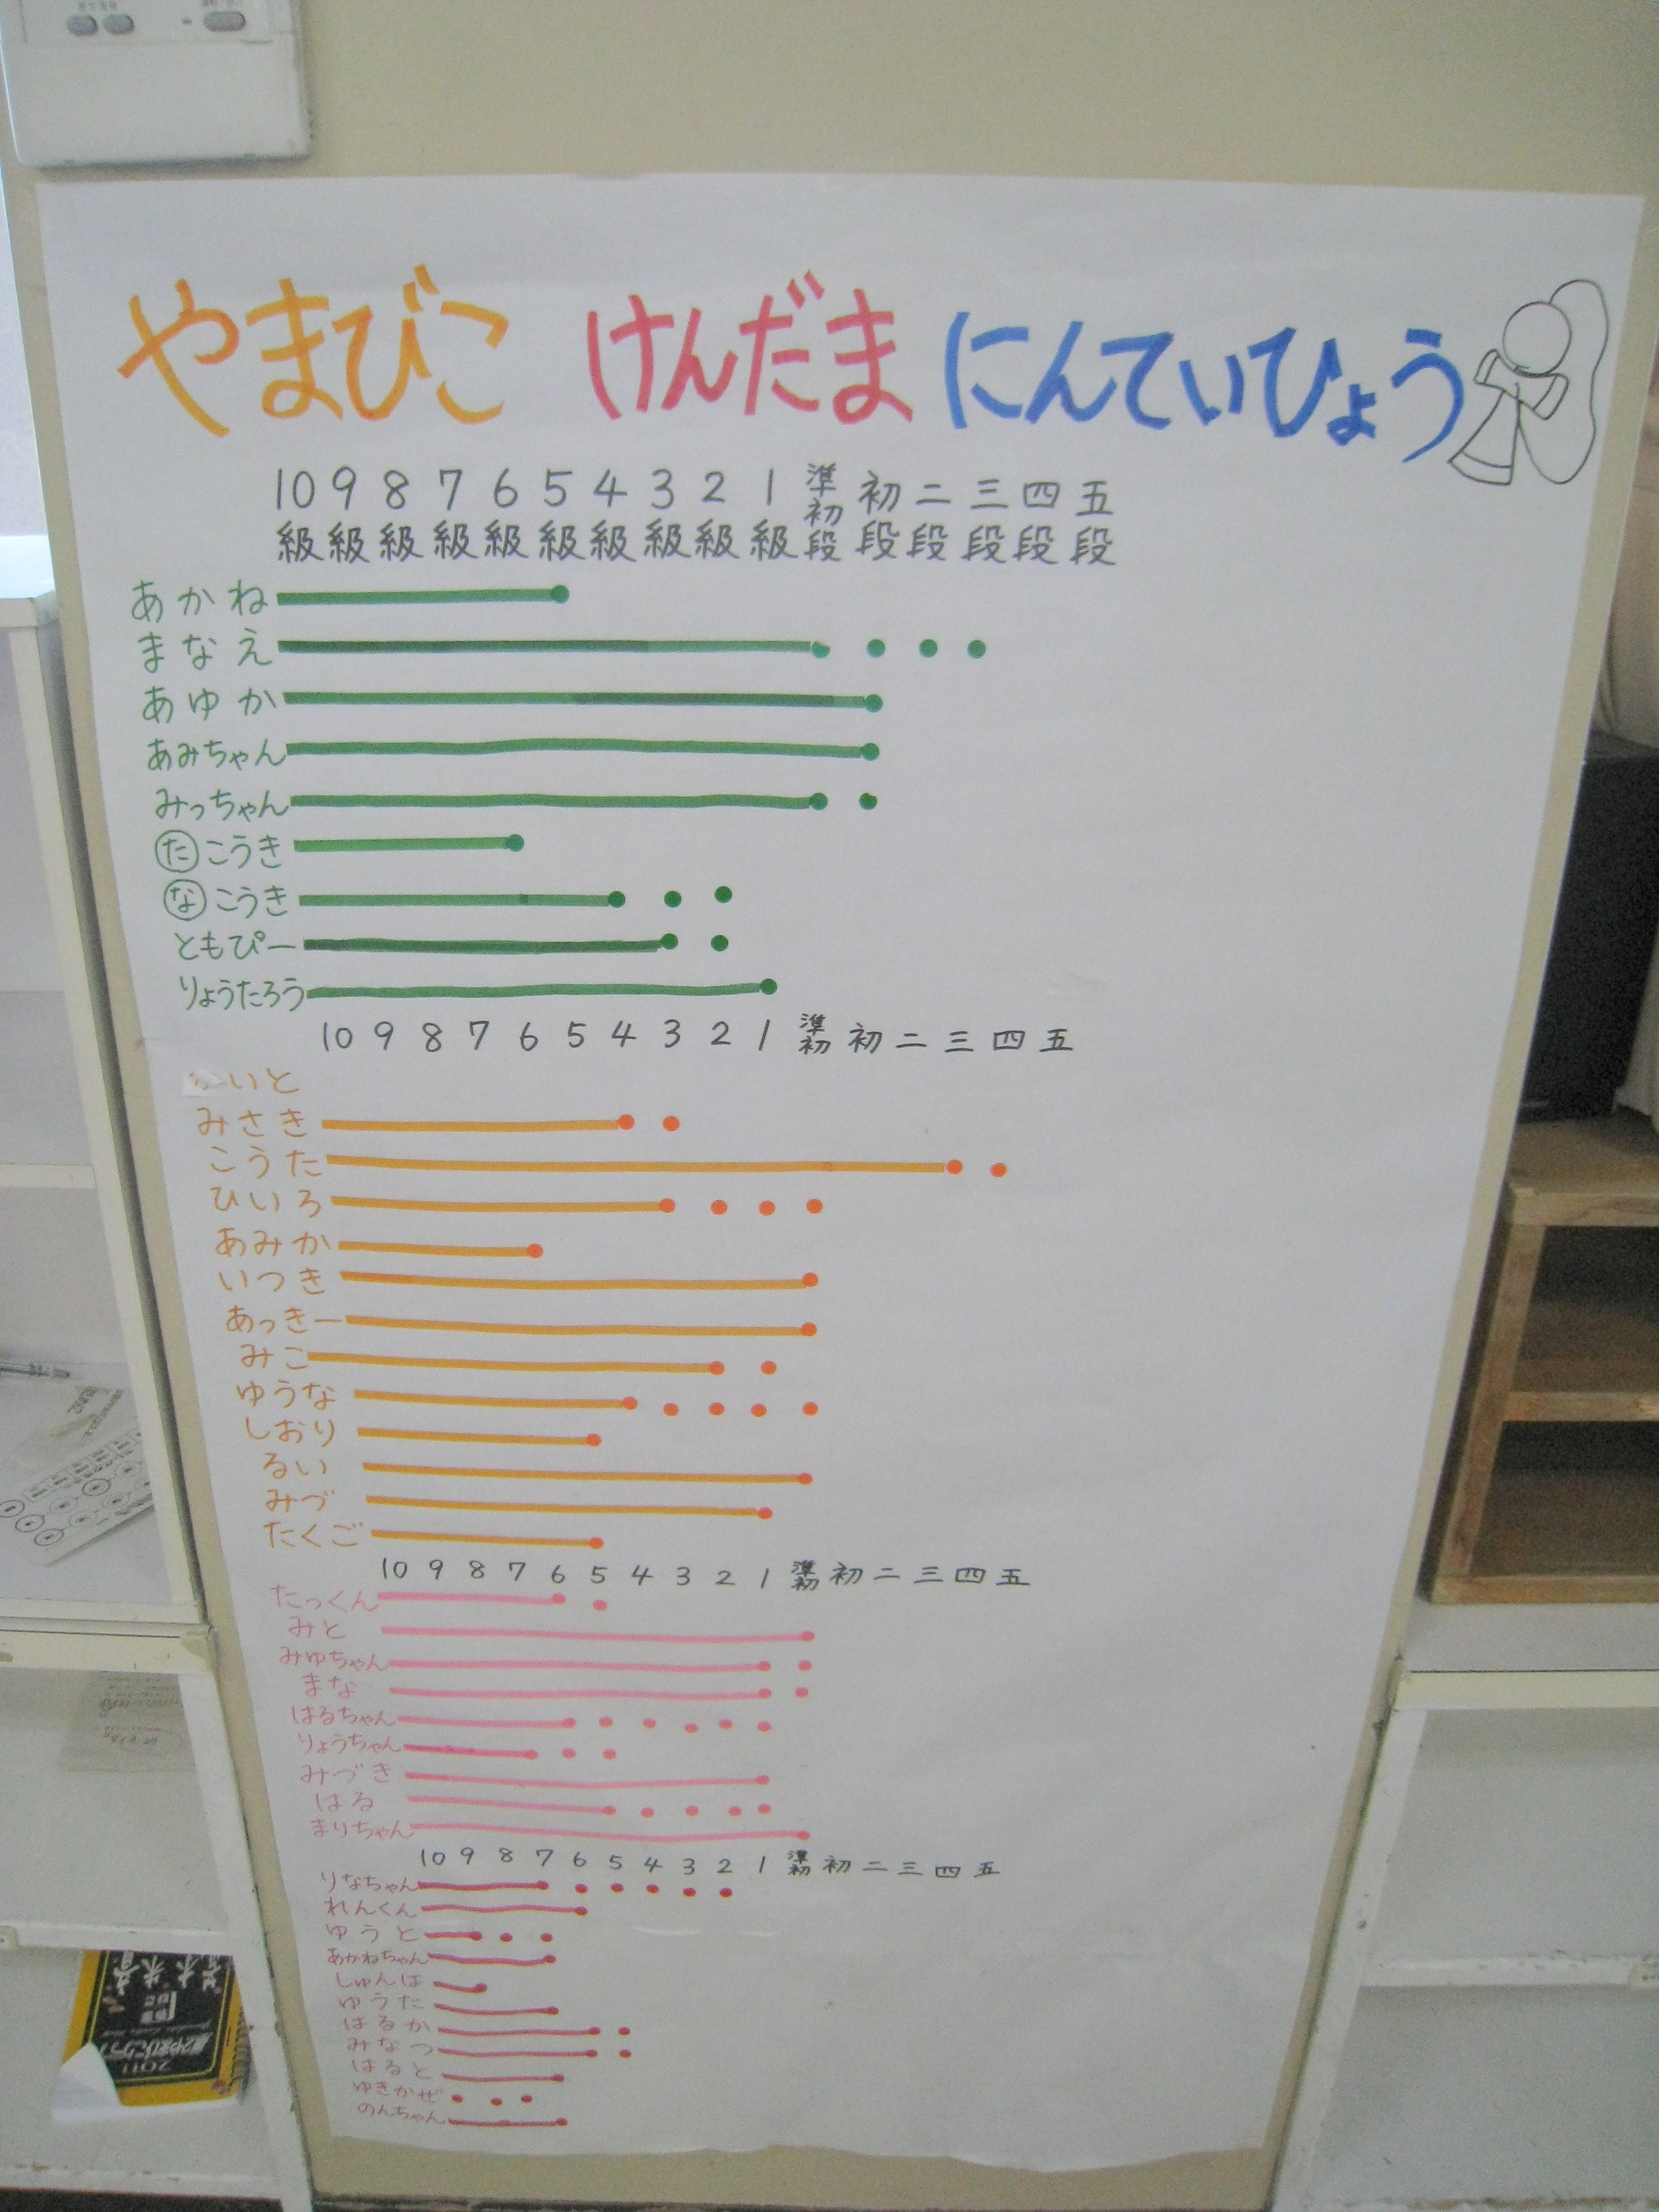 やまびこ けんだま にんていひょう
10 9 8 7 6 5 4 3 2 1 準初 初 二 三 四 五
級 級 級 級 級 級 級 級 級 級 段 段 段 段 段 段
あかね
まなえ
あゆか
あみちゃん
みっちゃん
たこうき
なこうき
ともぴー
りょうたろう
10 9 8 7 6 5 4 3 2 1 準初 初 二 三 四 五
いと
みさき
こうた
ひいろ
あみか
いつき
あっきー
みこ
ゆうな
しおり
るい
みづ
たくご
10 9 8 7 6 5 4 3 2 1 準初 初 二 三 四 五
たっくん
みと
みゆちゃん
まな
はるちゃん
りょうちゃん
みづき
はる
まりちゃん
10 9 8 7 6 5 4 3 2 1 準初 初 二 三 四 五
りなちゃん
れんくん
ゆうと
あかねちゃん
しゅんは
ゆうた
はるか
みなつ
はると
ゆきかぜ
のんちゃん
2011